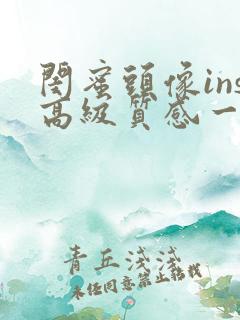 閨蜜頭像ins
高級質感一
青丘浅浅
未经同意禁止转载